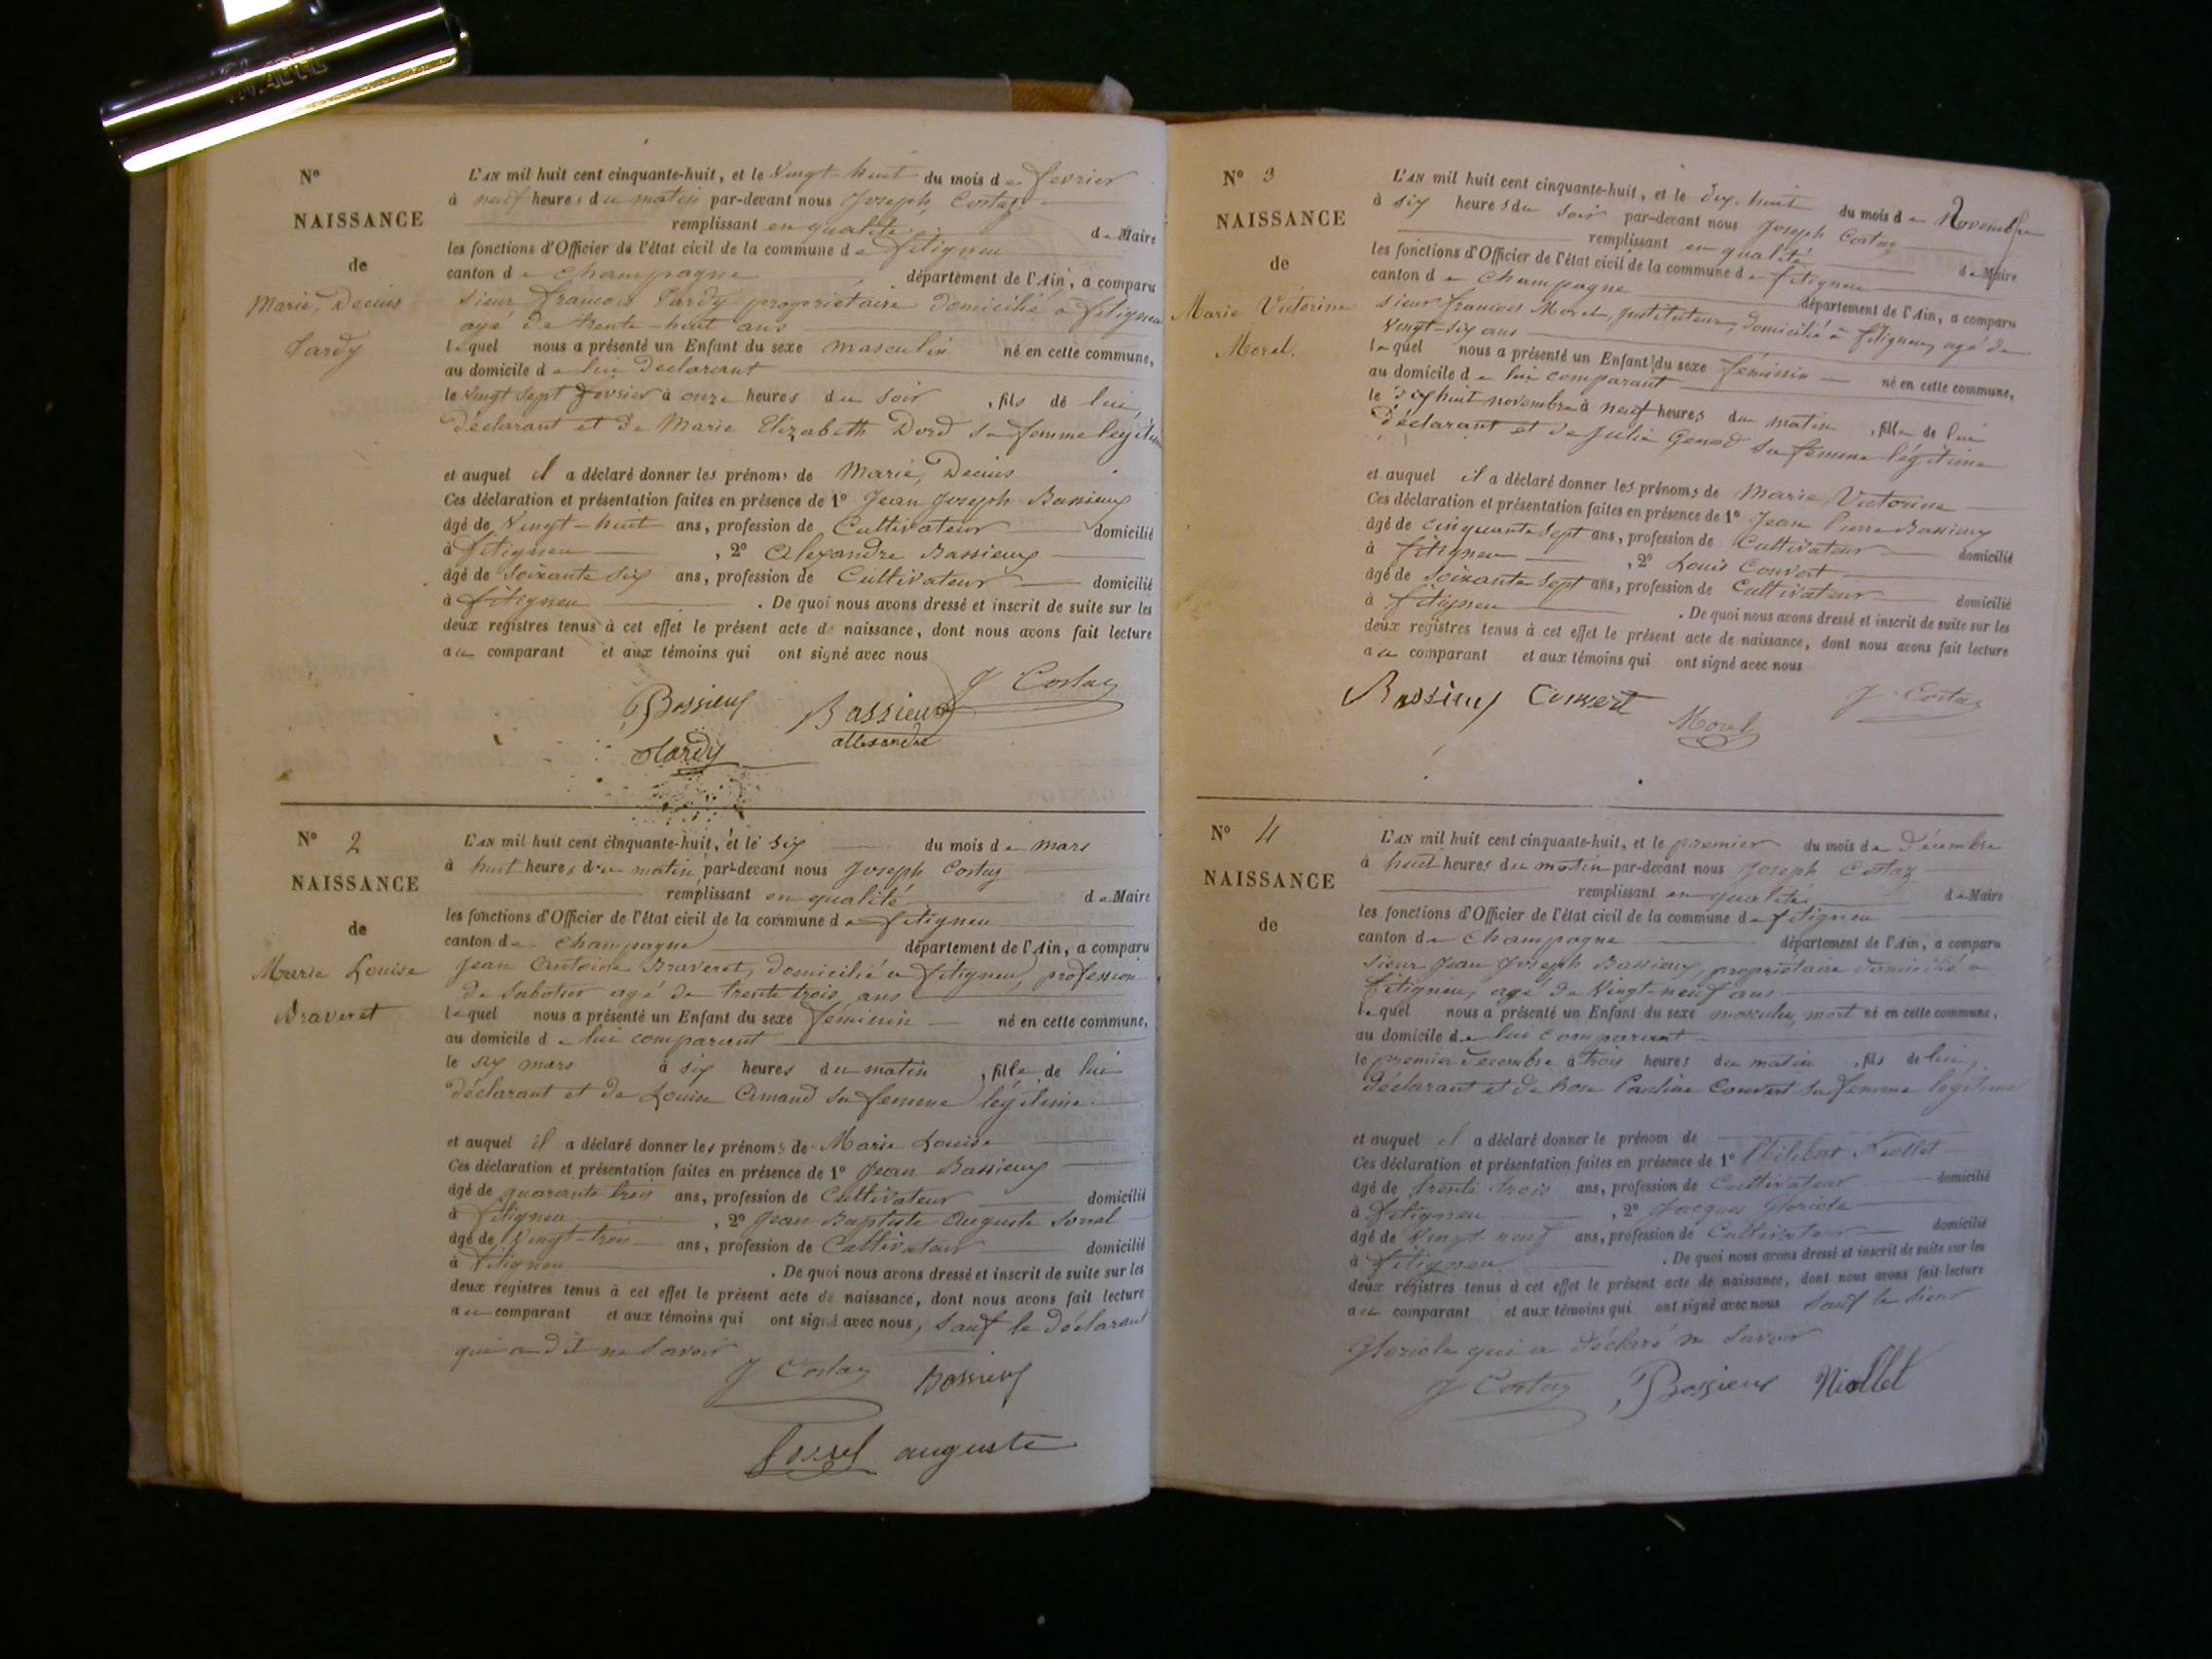 N°
NAISSANCE
de
Marie, Decius
Tardy
L'AN mil huit cent cinquante-huit, et le Vingt-huit du mois de fevrier
à neuf heures du matin par-devant nous Joseph Costaz
remplissant en qualité de Maire
les fonctions d'Officier de l'état civil de la commune de fitigneu
canton de Champagne département de l'Ain, a comparu
Sieur francois Tardy proprietaire domicilié à fitigneu
agé de trente-huit ans
lequel nous a présenté un Enfant du sexe masculin né en cette commune,
au domicile de lui Declarant
le Vingt sept fevrier à onze heures du soir, fils de lui,
déclarant et de Marie Elizabeth Dord sa femme legitime
et auquel il a déclaré donner les prénoms de Marie, Decius
Ces déclaration et présentation faites en présence de 1° Jean Joseph Bassieux
âgé de Vingt-huit ans, profession de Cultivateur domicilié
à fitigneu, 2° Alexandre Bassieux
âgé de Soixante six ans, profession de Cultivateur domicilié
à fitigneu. De quoi nous avons dressé et inscrit de suite sur les
deux registres tenus à cet effet le présent acte de naissance, dont nous avons fait lecture
au comparant et aux témoins qui ont signé avec nous
J Costaz
Bassieux Bassieux
allexandre
Tardy
N° 2
NAISSANCE
de
Marie Louise
Braveret
L'AN mil huit cent cinquante-huit, et le six du mois de mars
à huit heures du matin par-devant nous Joseph Costaz
remplissant en qualité de Maire
les fonctions d'Officier de l'état civil de la commune de fitigneu
canton de Champagne département de l'Ain, a comparu
Jean Antoine Braveret, domicilié a fitigneu, profession
de Sabotier agé de trente trois ans
lequel nous a présenté un Enfant du sexe féminin né en cette commune,
au domicile de lui comparant
le six mars à six heures du matin, fille de lui
déclarant et de Louise Amand sa femme légitime
et auquel il a déclaré donner les prénoms de Marie Louise
Ces déclaration et présentation faites en présence de 1° Jean Bassieux
âgé de quarante trois ans, profession de Cultivateur domicilié
à fitigneu, 2° Jean Baptiste Auguste
âgé de Vingt-trois ans, profession de Cultivateur domicilié
à fitigneu. De quoi nous avons dressé et inscrit de suite sur les
deux registres tenus à cet effet le présent acte de naissance, dont nous avons fait lecture
au comparant et aux témoins qui ont signé avec nous, Sauf le déclarant
qui a dit ne Savoir
J Costaz Bassieux
auguste
N° 3
NAISSANCE
de
Marie Victorine
Morel.
L'AN mil huit cent cinquante-huit, et le dix-huit du mois de Novembre
à six heures du soir par-devant nous Joseph Costaz
remplissant en qualité de Maire
les fonctions d'Officier de l'état civil de la commune de fitigneu
canton de Champagne département de l'Ain, a comparu
Sieur francois Morel, instituteur, domicilié à fitigneu, agé de
Vingt-six ans
lequel nous a présenté un Enfant du sexe féminin né en cette commune,
au domicile de lui comparant
le dix huit novembre à neuf heures du matin, fille de lui
déclarant et de Julie Genod sa femme légitime
et auquel il a déclaré donner les prénoms de Marie Victorine
Ces déclaration et présentation faites en présence de 1° Jean Pierre Bassieux
âgé de cinquante sept ans, profession de Cultivateur domicilié
à fitigneu, 2° Louis Convert
âgé de soixante sept ans, profession de Cultivateur domicilié
à fitigneu. De quoi nous avons dressé et inscrit de suite sur les
deux registres tenus à cet effet le présent acte de naissance, dont nous avons fait lecture
au comparant et aux témoins qui ont signé avec nous
Bassieux Convert Morel J Costaz
N° 4
NAISSANCE
de
L'AN mil huit cent cinquante-huit, et le premier du mois de Décembre
à huit heures du matin par-devant nous Joseph Costaz
remplissant en qualité de Maire
les fonctions d'Officier de l'état civil de la commune de fitigneu
canton de Champagne département de l'Ain, a comparu
Sieur Jean Joseph Bassieux, propriétaire domicilié a
fitigneu, agé de Vingt-neuf ans
lequel nous a présenté un Enfant du sexe masculin, mort né en cette commune,
au domicile de lui comparant
le premier Decembre à trois heures du matin, fils de lui,
déclarant et de Rose Pauline Convert sa femme legitime
et auquel il a déclaré donner le prénom de
Ces déclaration et présentation faites en présence de 1° Philibert Niollet
âgé de trente trois ans, profession de Cultivateur domicilié
à fitigneu, 2° Jacques Gloriole
âgé de Vingt-neuf ans, profession de Cultivateur domicilié
à fitigneu. De quoi nous avons dressé et inscrit de suite sur les
deux registres tenus à cet effet le présent acte de naissance, dont nous avons fait lecture
au comparant et aux témoins qui ont signé avec nous Sauf le Sieur
Gloriole qui a déclaré ne Savoir
J Costaz Bassieux Niollet